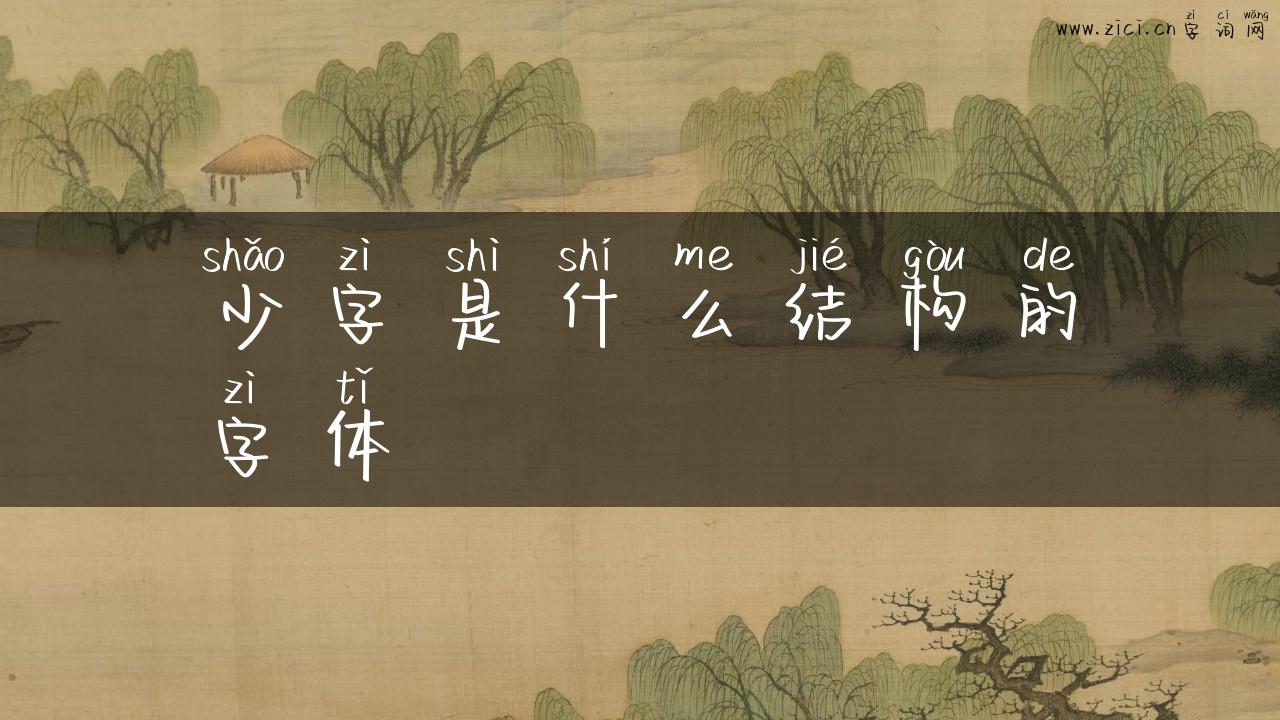 zì cí wǎng
www.zici.cn 字词网
shǎo zì shì shí me jié gòu de
少字是什么结构的
zì tǐ
字体